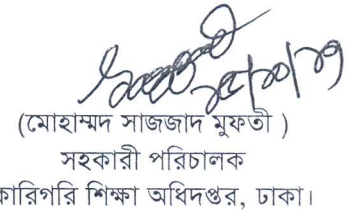 (মোহাম্মদ সাজজাদ মুফতী )
সহকারী পরিচালক
কারিগরি শিক্ষা অধিদপ্তর, ঢাকা।